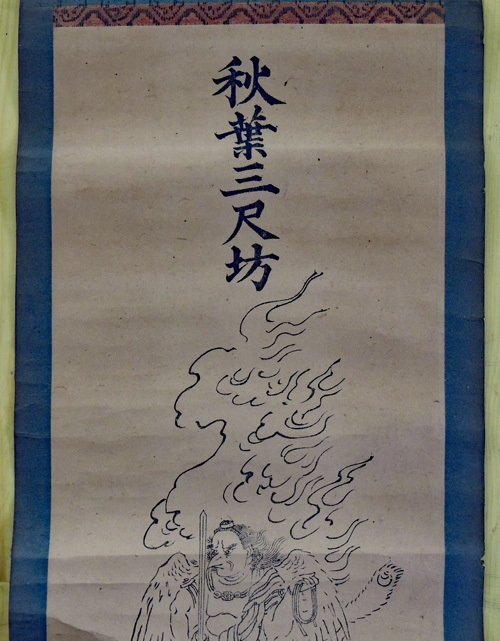 秋葉三尺坊